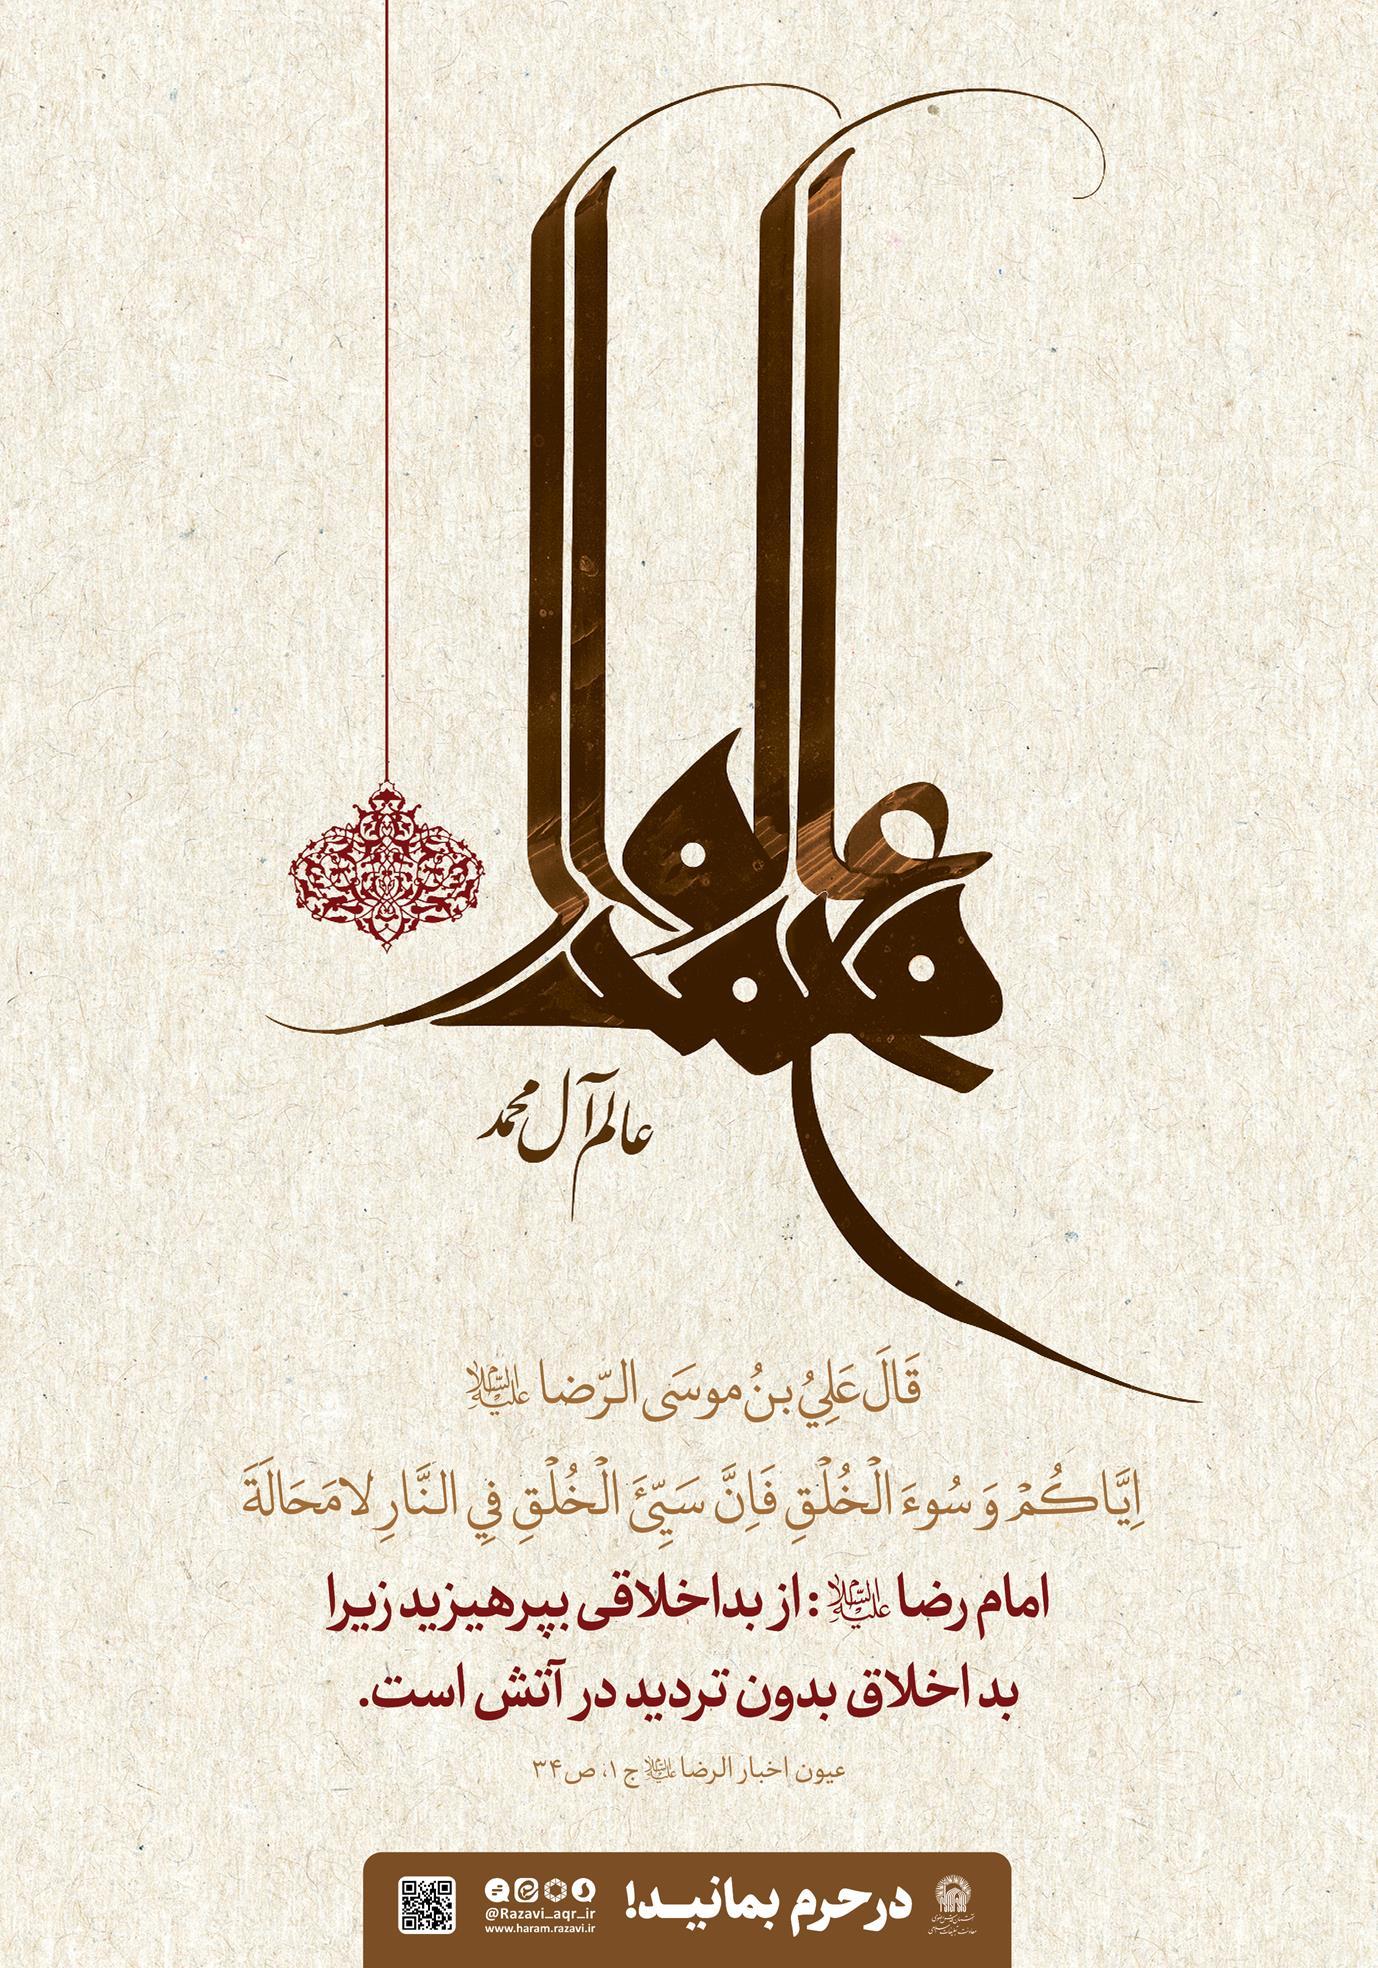 عالم آل محمد
عالم آل محمد
قَالَ عَلِيُ بنُ موسَى الرّضا علیه السلام
اِيَّاكُمْ وَ سُوءَ الْخُلْقِ فَاِنَّ سَيِّئَ الْخُلْقِ فِي النَّارِ لامَحَالَةَ
امام رضا علیه السلام : از بداخلاقی بپرهیزید زیرا
بد اخلاق بدون تردید در آتش است.
عیون اخبار الرضا علیه السلام ج ۱، ص ۳۴
در حرم بمانید!
@Razavi_aqr_ir
www.haram.razavi.ir